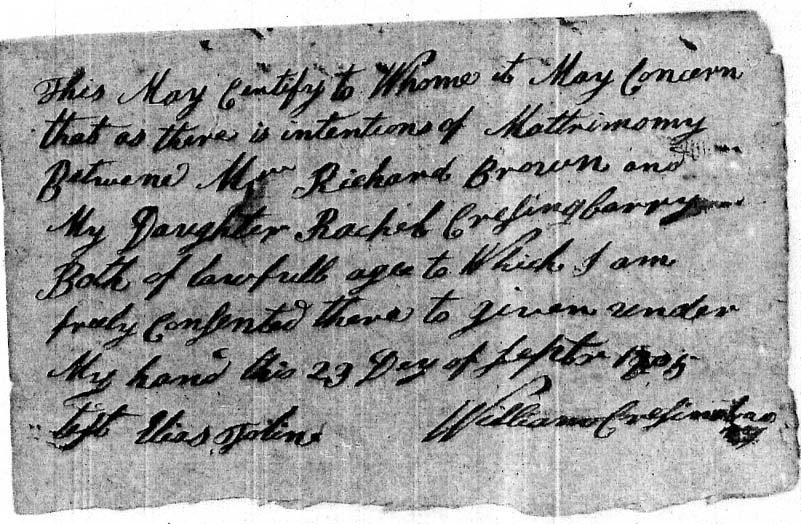 This May Certify to Whome it May Concern
that as there is intentions of Mattrimomy
Betwene Mr Richard Brown and
My Daughter Rachel Cresingbarry
Both of lawfull agee to Which I am
freely Consented there to given under
My hand this 23 Dey of Septr
test Elias Tolin William